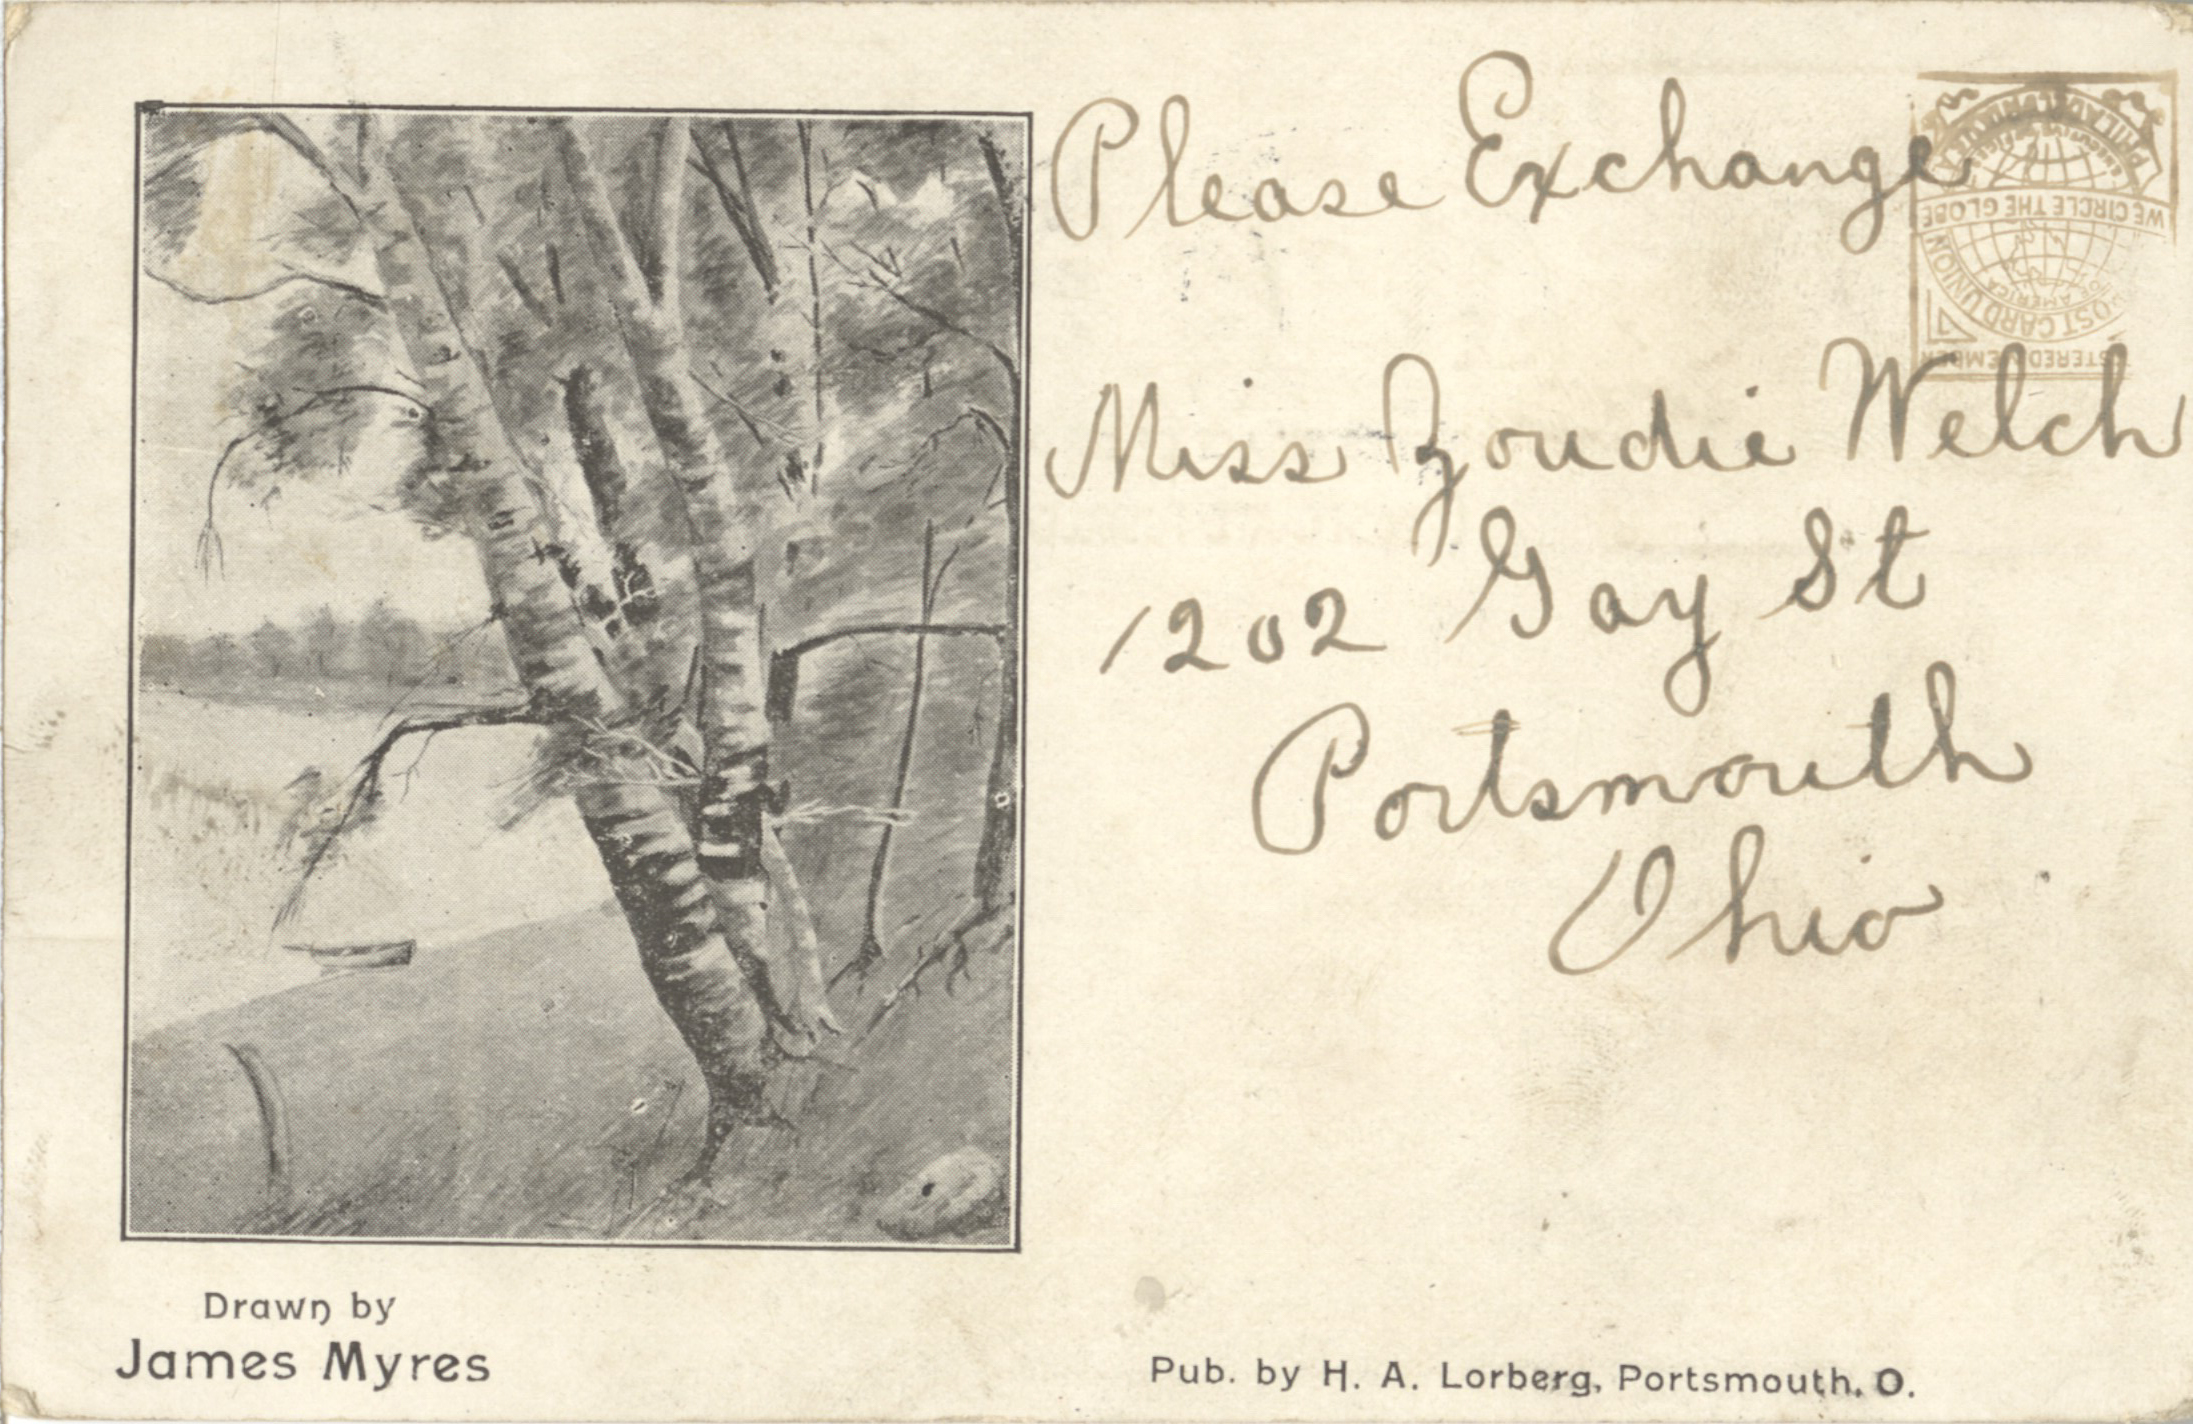 Please Exchange
Miss Zoudie Welch
1202 Gay St
Portsmouth
Ohio
PHILADELPHIA
WE CIRCLE THE GLOBE
POST CARD UNION
OF AMERICA
Drawn by
James Myres
Pub. by H. A. Lorberg, Portsmouth, O.